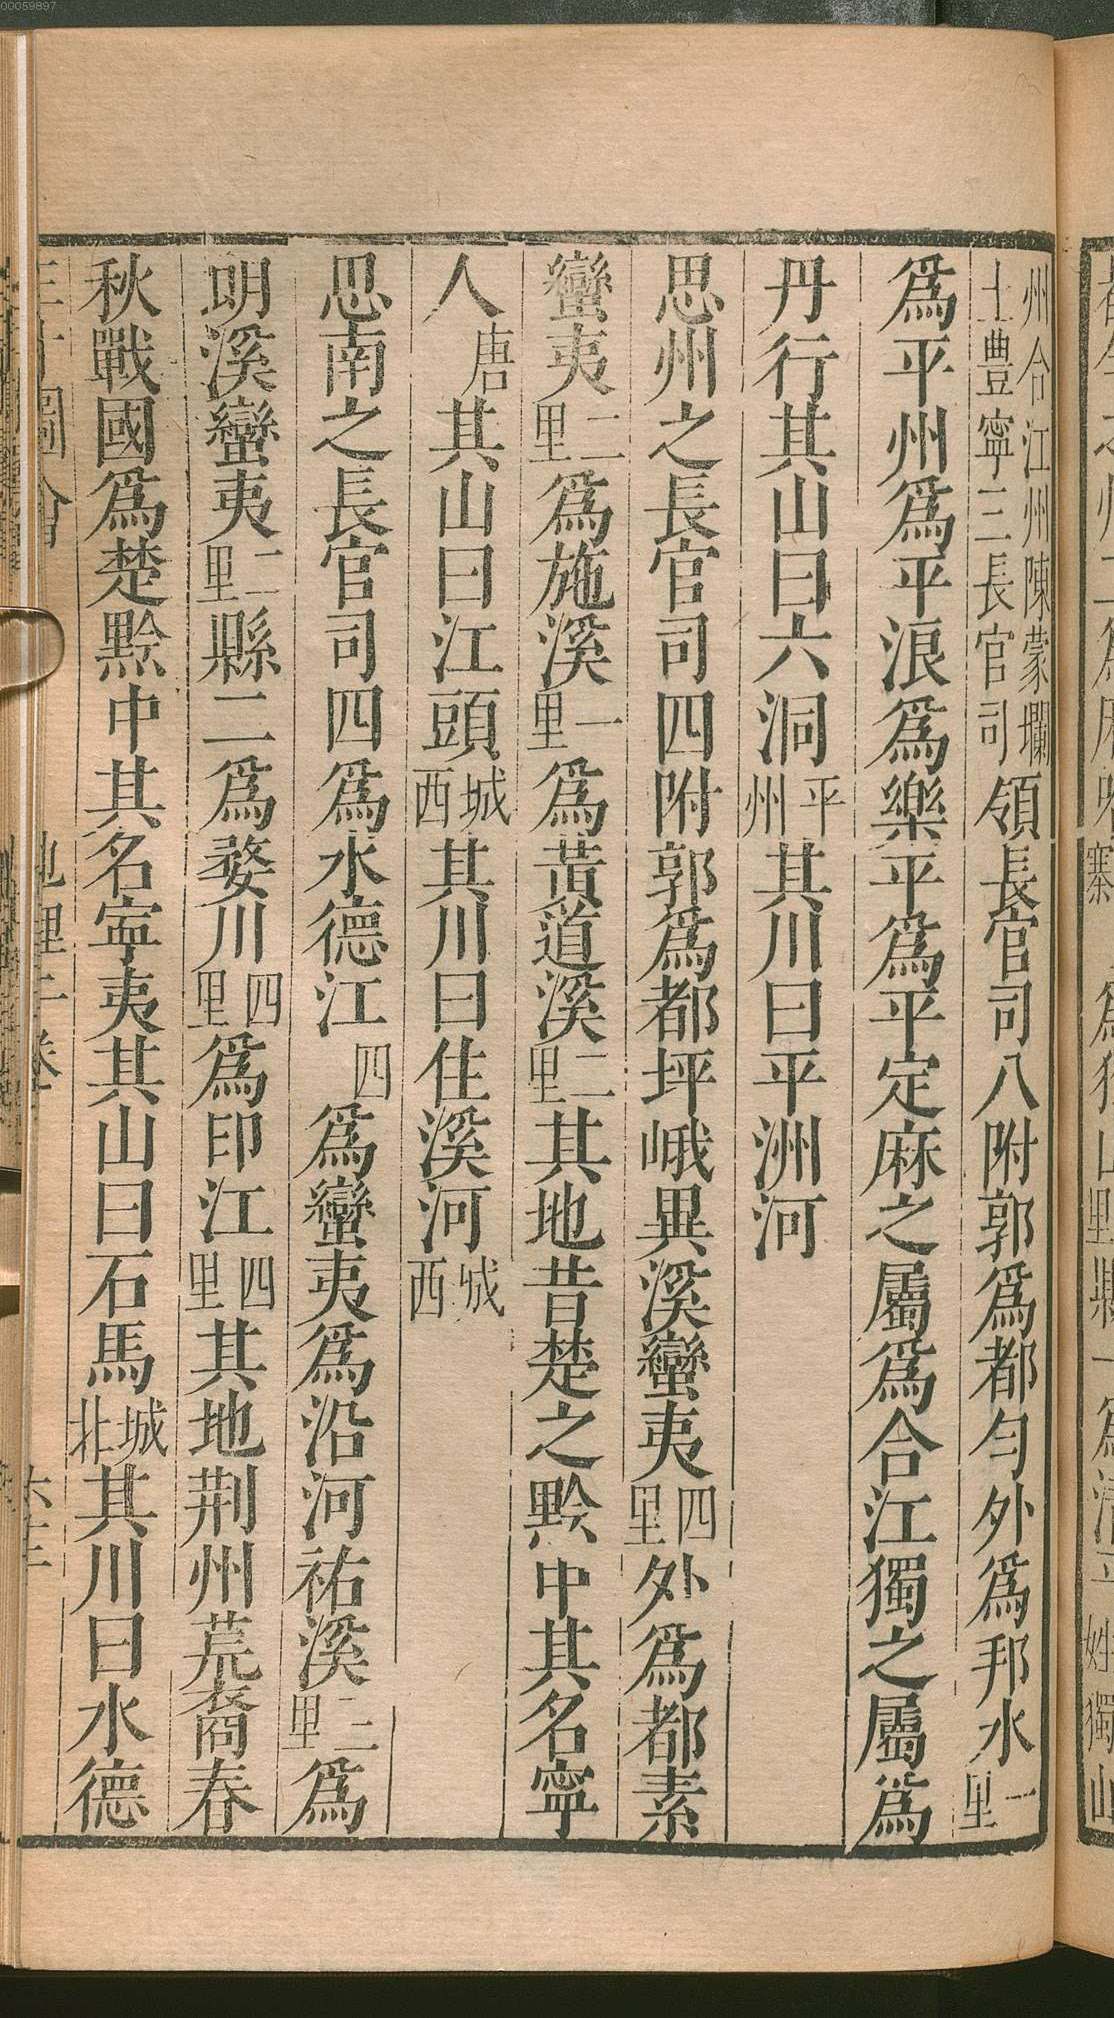 州合江州陳蒙爛
土豐寧三長官司領長官司八附郭爲都勻外爲邦水一里
爲平州爲平浪爲樂平爲平定麻之屬爲合江獨之屬爲
丹行其山曰六洞平州其川曰平洲河
思州之長官司四附郭爲都坪峨異溪蠻夷四里外爲都素
蠻夷二里爲施溪一里爲黃道溪二里其地昔楚之黔中其名寧
人唐其山曰江頭城西其川曰住溪河城西
思南之長官司四爲水德江四爲蠻夷爲沿河祐溪二里爲
朗溪蠻夷二里縣二爲婺川四里爲印江四里其地荆州荒裔春
秋戰國爲楚黔中其名寧夷其山曰石馬城北其川曰水德
00059897